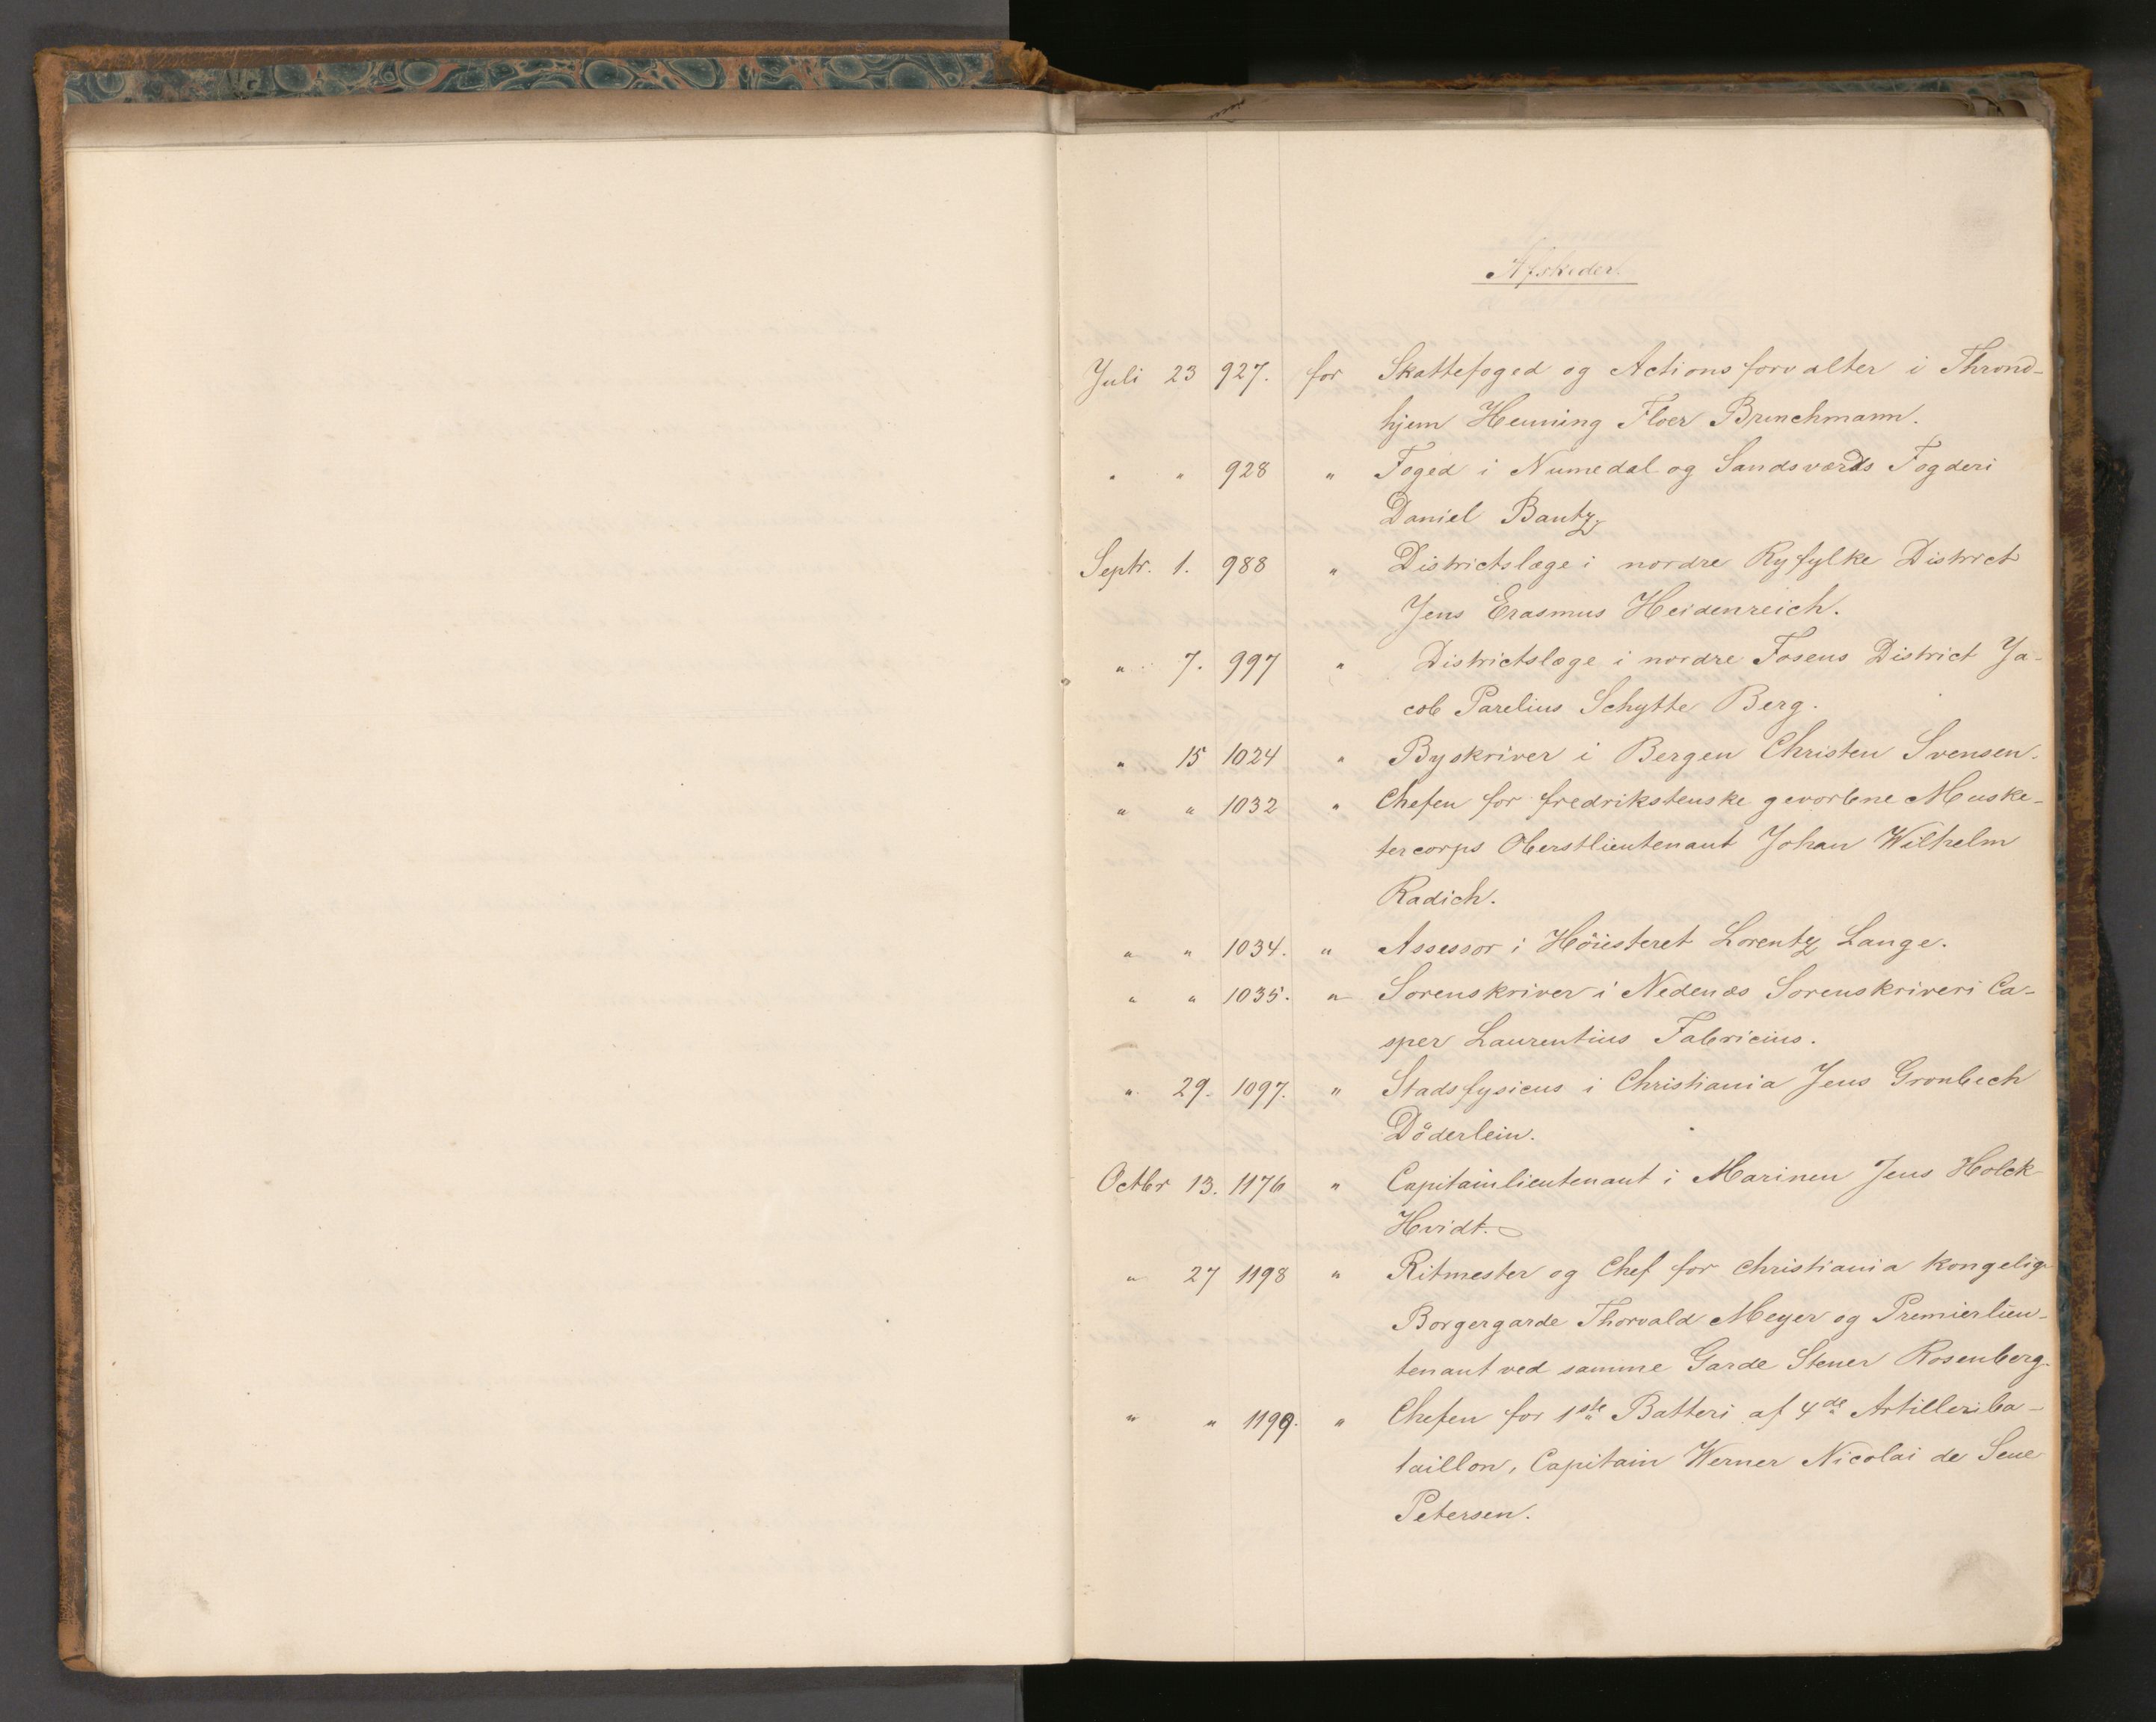 Afskeder.
Juli 23 927. for Skattefoged og Actionsforvalter i Thrond-
hjem Henning Floer Brinchmann.
" " 928 " Foged i Numedal og Sandsværds Fogderi
Daniel Bautz,
Septr. 1. 988 " Districtslæge i nordre Ryfylke District
Jens Erasmus Heidenreich.
" 7. 997 " Districtslæge i nordre Fosens District Ja-
cob Parelius Schytte Berg.
" 15 1024 " Byskriver i Bergen Christen Svensen.
" " 1032 " Chefen for fredrikstenske gevorbne Muske-
tercorps Oberstlieutenant Johan Wilhelm
Radich.
" " 1034. " Assessor i Höiesteret Lorentz Lange.
" " 1035. " Sorenskriver i Nedenæs Sorenskriveri Ca-
sper Laurentius Fabricius.
" 29. 1097. " Stadsfysicus i Christiania Jens Gronbech
Döderlein.
Octbr 13. 1176 " Capitainlieutenant i Marinen Jens Holck
Hvidt.
" 27 1198 " Ritmester og Chef for Christiania kongelige
Borgergarde Thorvald Meyer og Premierlieu-
tenant ved samme Garde Stener Rosenberg.
" " 1199. " Chefen for 1ste Batteri af 4de Artilleriba-
taillon, Capitain Werner Nicolai de Seue
Petersen.